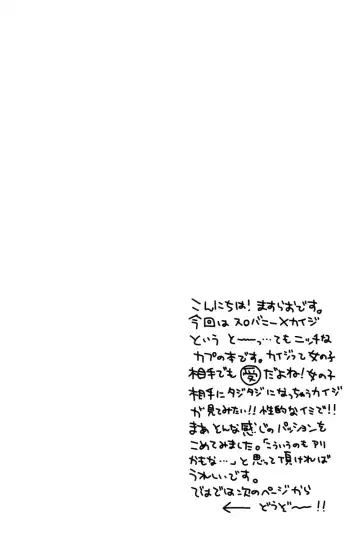 こんにちは!ますらおです。
今回は スロバニー×カイジ
という と〜〜っ…てもニッチな
カプの本です。カイジって女の子
相手でも 受 だよね!女の子
相手にタジタジになっちゃうカイジ
が見てみたい!!性的なイミで!!
まぁそんな感じのパッションを
こめてみました。「こういうのも アリ
かもな…」と思って頂ければ
うれしいです。
ではでは次のページから
← どうぞ〜!!